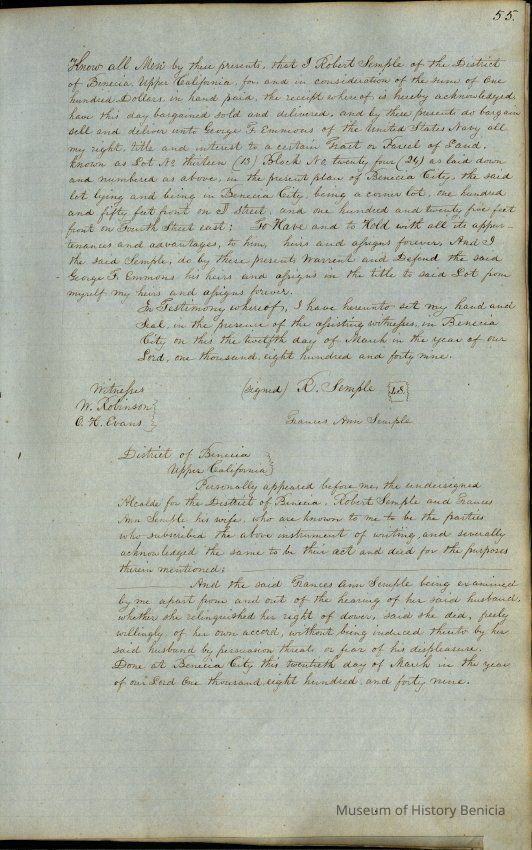 55.
Know all Men by these presents, that I Robert Semple of the District
of Benicia, Upper California, for and in consideration of the sum of One
hundred Dollars in hand paid, the receipt whereof is hereby acknowledged,
have this day bargained sold and delivered, and by these presents do bargain
sell and deliver unto George F. Emmons of the United States Navy all
my right, title and interest to a certain Tract or Parcel of Land,
known as Lot No thirteen (13) Block No twenty four (24) as laid down
and numbered as above, in the present plan of Benicia City, the said
lot lying and being in Benicia City, being a corner lot, one hundred
and fifty feet front on I Street, and one hundred and twenty five feet
front on Fourth Street east; To Have and to Hold with all its appur-
tenances and advantages, to him, heirs and assigns forever, And I
the said Semple, do by these presents Warrent and Defend the said
George F. Emmons his heirs and assigns in the title to said Lot from
myself my heirs and assigns forever.
In Testimony whereof, I have hereunto set my hand and
Seal, in the presence of the assisting witnesses, in Benicia
City, on this the twelfth day of March in the year of our
Lord, one thousand eight hundred and forty nine.
Witnesses (signed) R. Semple L.S.
W. Robinson
O. H. Evans Frances Ann Semple
District of Benicia
Upper California
Personally appeared before me, the undersigned
Alcalde for the District of Benicia, Robert Semple and Frances
Ann Semple his wife, who are known to me to be the parties
who subscribed the above instrument of writing, and severally
acknowledged the same to be their act and deed for the purposes
therein mentioned;
And the said Frances Ann Semple being examined
by me apart from and out of the hearing of her said husband,
whether she relinquished her right of dower, said she did, freely
willingly, of her own accord, without being induced thereto by her
said husband by persuasion threat or fear of his displeasure.
Done at Benicia City this twentieth day of March in the year
of our Lord One thousand eight hundred and forty nine.
Museum of History Benicia